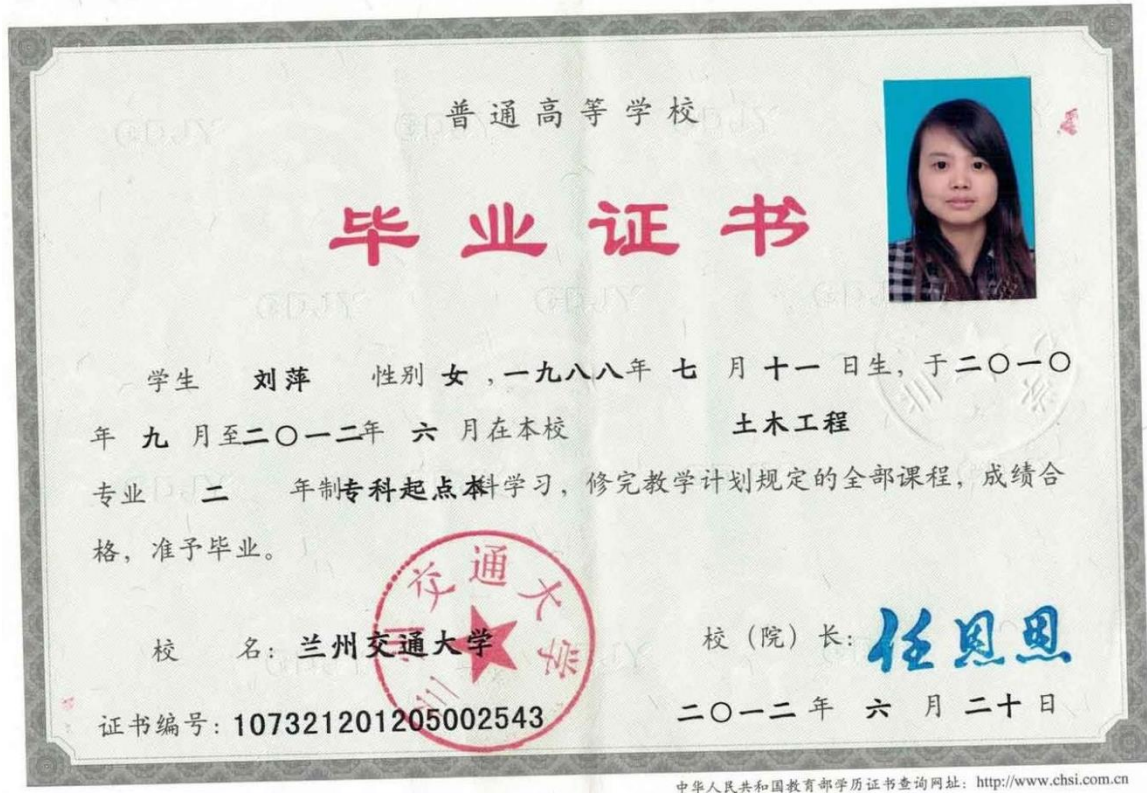 普通高等学校
毕业证书
学生 刘萍 性别 女，一九八八年 七 月 十一 日生，于二〇一〇
年 九 月至二〇一二年 六 月在本校 土木工程
专业 二 年制专科起点本科学习，修完教学计划规定的全部课程，成绩合
格，准予毕业。
兰州交通大学
校 名：兰州交通大学
校（院）长：任恩恩
证书编号：107321201205002543
二〇一二年 六 月 二十 日
中华人民共和国教育部学历证书查询网址：http://www.chsi.com.cn